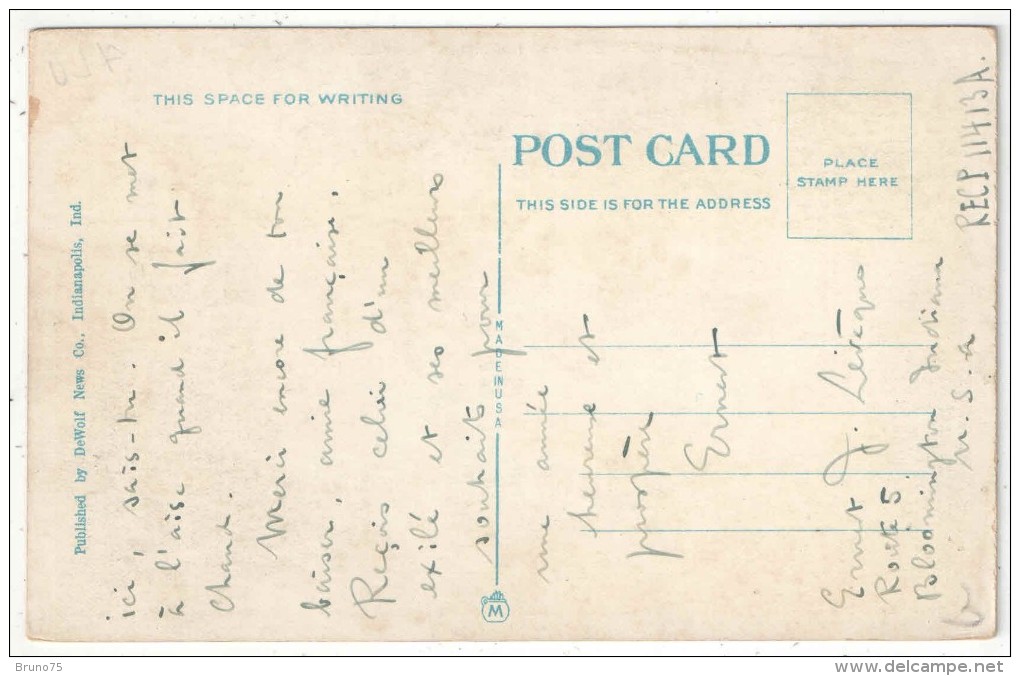 THIS SPACE FOR WRITING
POST CARD
THIS SIDE IS FOR THE ADDRESS
PLACE
STAMP HERE
Published by DeWolf News Co., Indianapolis, Ind.
MADE IN USA
M
ici, sais-tu. On se met
à l'aise quand il fait
chaud.
Merci encore de ton
baiser, amie française.
Reçois celui d'un
exilé et ses meilleurs
souhaits pour
une année
heureuse et
prospère
Ernest
Ernest J. Lévêque
Route 5
Bloomington Indiana
U. S. a
RECP 11413A.
Bruno75
www.delcampe.net